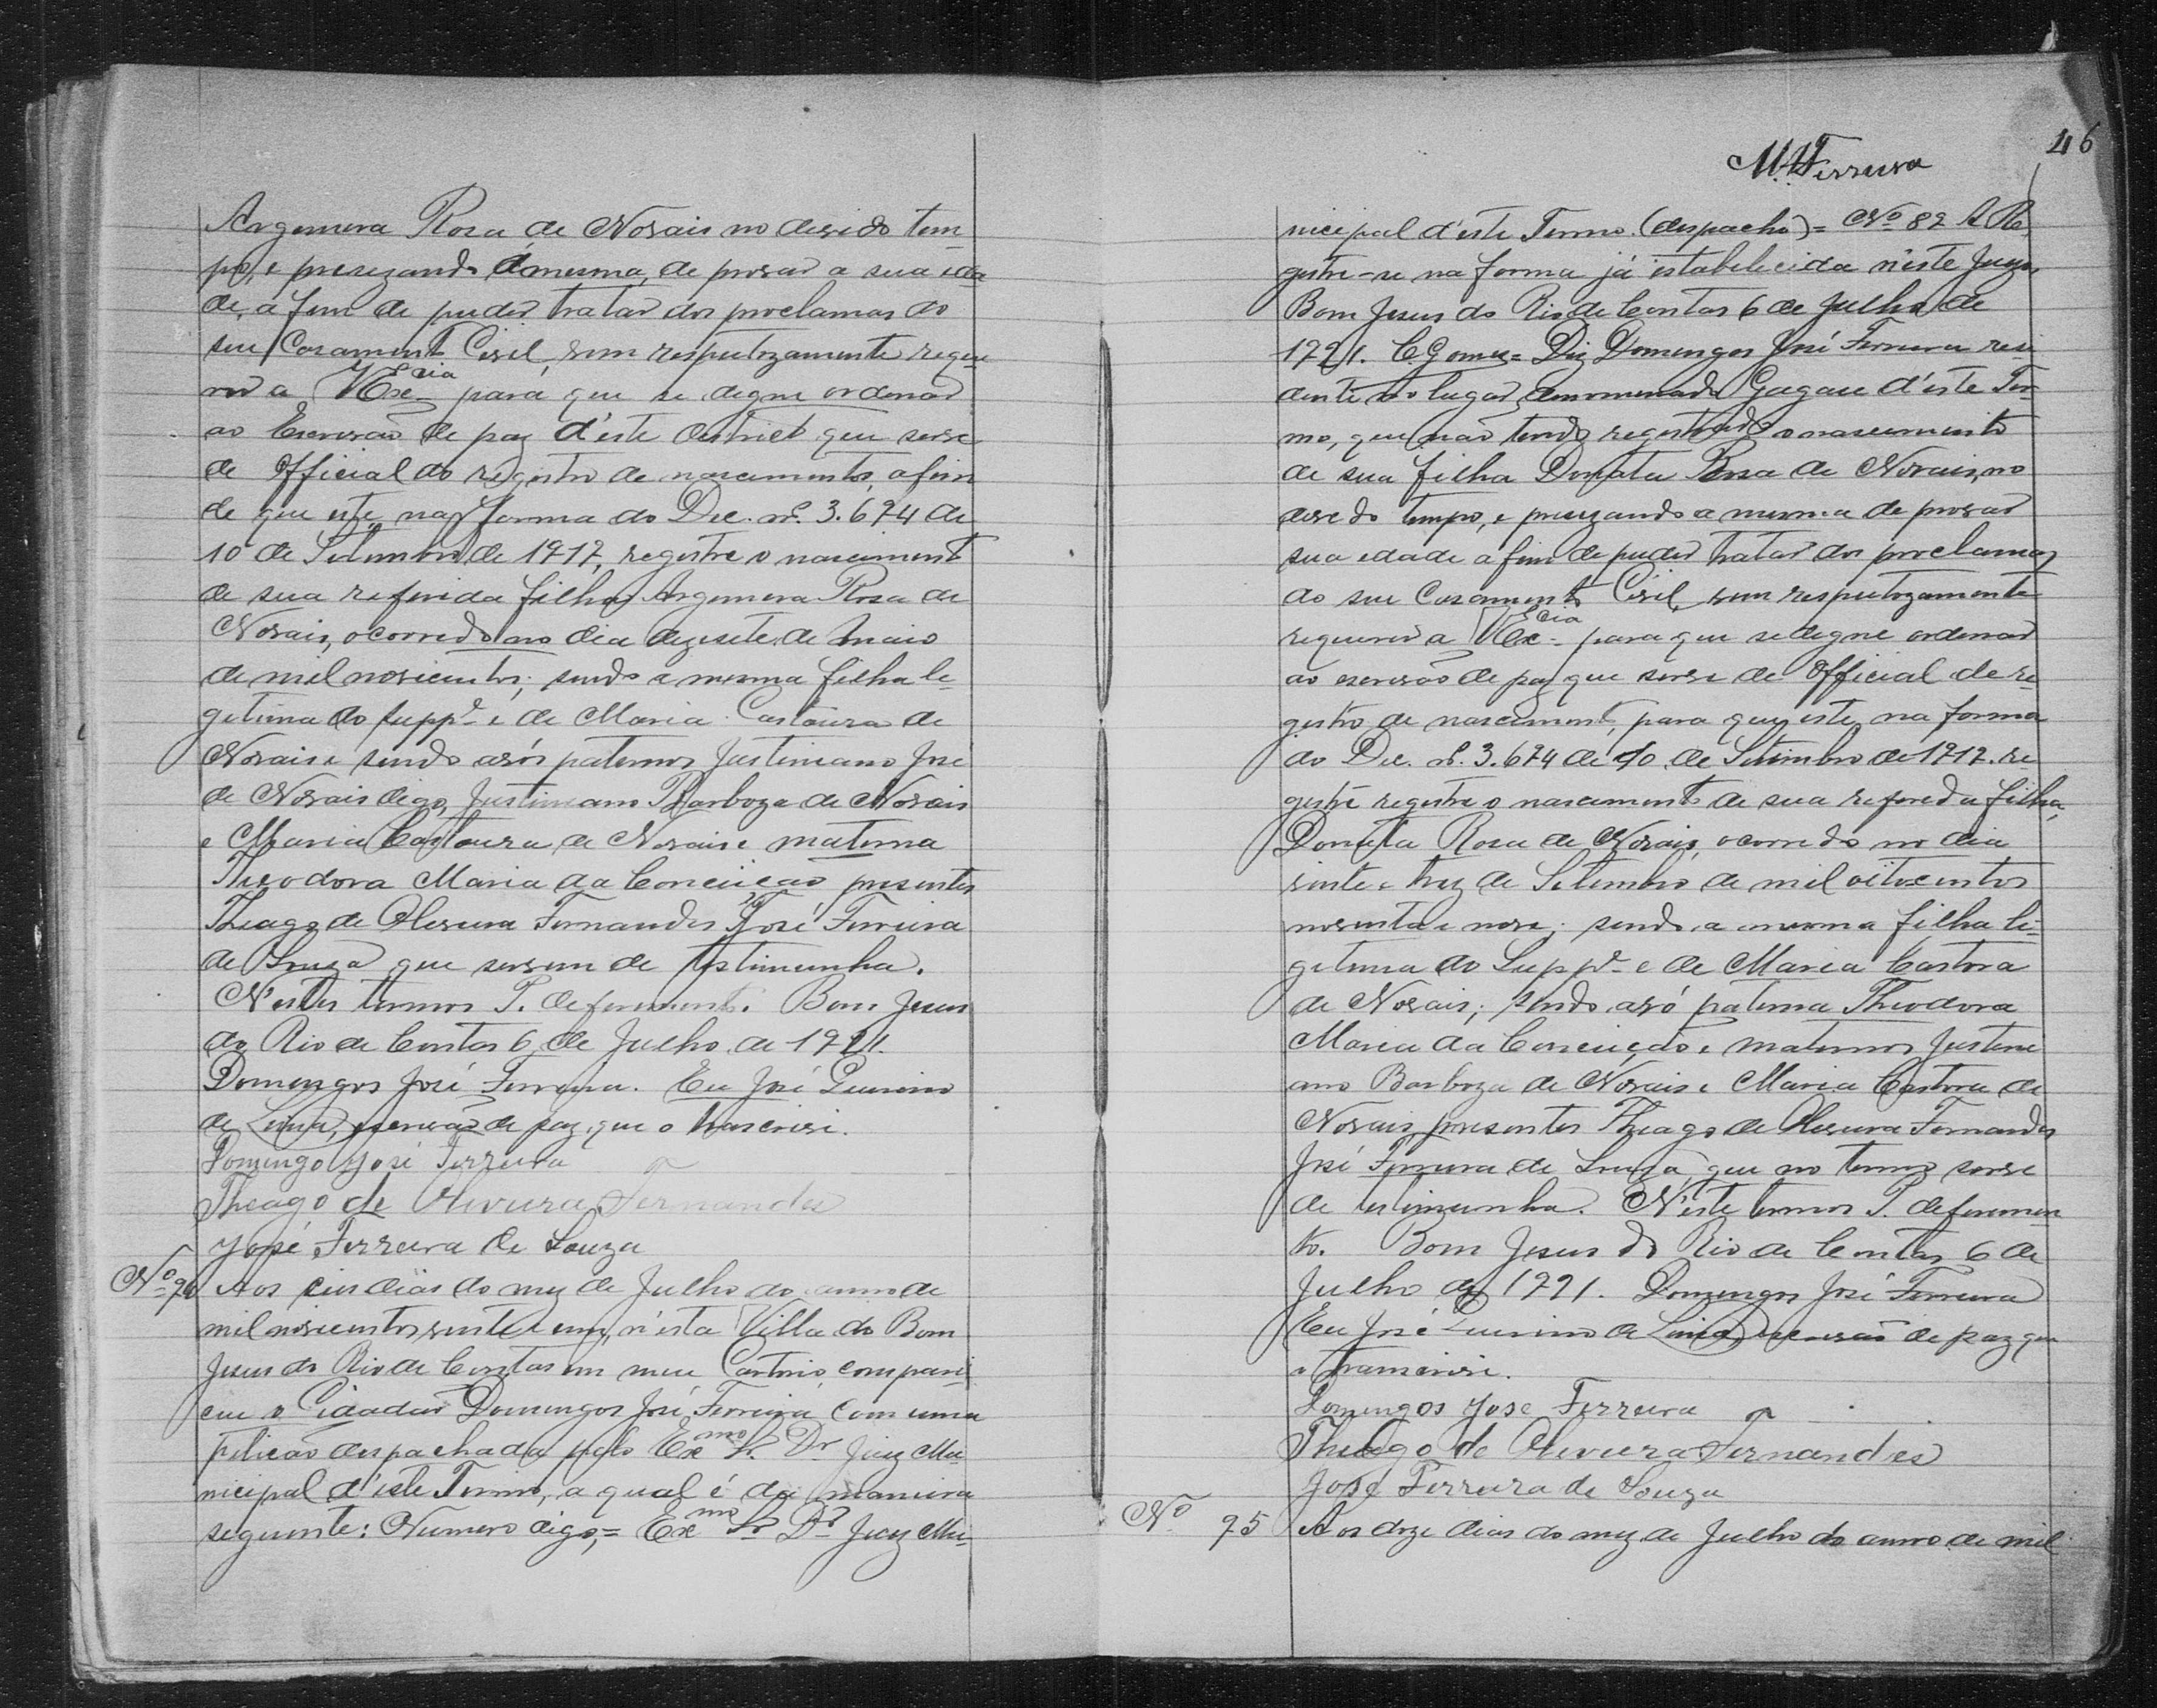 Argemera Rosa de Novais no devido tem-
po, e presezando a mesma, de provar a sua eda
de, a fim de puder tratar dos proclamas do
seu Casament Civil, vem respeitozamente reque
rer a VExcia para que se digne ordenar
ao Escrivão de paz d'este destricto que serve
de Official do registro de nascimentos, a fim
de que este, na forma do Dec. nº. 3.674 de
10 de Setembro de 1917, registre o nasciment
de sua referida filha, Argemera Rosa de
Novais, ocorredo no dia dezesete de Maio
de mil novicentos; sendo a mesma filha le-
getima do suppe e de Maria Castoura de
Novais e sendo avós paternos Justiniano José
de Novais digo, Justiniano Barboza de Novais
e Maria Castoura de Novais e materna
Theodora Maria da Conceiçao presentes
Theago de Oliveira Fernandes, José Ferreira
de Souza que servem de testimunha.
N'estes termos P. deferiment. Bom Jesus
do Rio de Contas 6 de Julho de 1921.
Domengos José Ferreira. Eu José Quirino
de Lima, escrivão de paz, que o transcrivi.
Domingo José Ferreira
Theago de Oliveira Fernandes
José Ferreira de Souza
Nº 94 Aos seis dias do mez de Julho do anno de
mil novicentos vinte e um, n'esta Villa do Bom
Jesus do Rio de Contas em meu Cartorio, compare-
ceu o Cidadão Domingos José Ferreira, com uma
petição despachada pelo Exmo Sr. Dr Juiz Mu-
nicipal d'este Termo, a qual é da maneira
seguinte: Numero digo,= Exmo Sr Dr Juiz Mu-
46
M. Ferreira
nicipal d'este Termo. (despacho)= Nº 82 A Re-
gestre-se na forma já estabelecida n'este Juizo,
Bom Jesus do Rio de Contas 6 de Julho de
1921. C. Gomes= Diz Domengos José Ferreira resi
dente no lugar denomenado d'este Ter-
mo, que não tendo registrado o nascimento
de sua filha Donata Rosa de Novais, no
devedo tempo, e presezando a mesma de provar
sua edade a fim de puder tratar dos proclamas
do seu Casament Civil, vem respeitozamente
requerer a VExcia para que se digne ordenar
ao escrivão de paz que serve de Official de re-
gestro de nasciment, para que este, na forma
do Dec. nº. 3.674 de 10 de Setembro de 1917. re-
gestre registre o nascimento de sua refereda filha,
Donata Rosa de Novais, ocorredo no dia
vinte e trez de Setembro de mil oitocentos
noventa e nove; sendo a mesma filha le-
getima do Suppe e de Maria Castora
de Novais; sendo avó paterna Theodora
Maria da Conceição e maternos Justini
ano Barboza de Novais e Maria Castora de
Novais, presentes Theago de Oliveira Fernandes
José Ferreira de Souza que no termo serve
de testimunha. N'este termos P. deferimen
to. Bom Jesus do Rio de Contas 6 de
Julho de 1921. Domengos José Ferreira
Eu José Quirino de Lima, escrivão de paz que
o transcrivi.
Domingos Jose Ferreira
Theago de Oliveira Fernandes
José Ferreira de Souza
Nº 95 Aos doze dias do mez de Julho do anno de mil